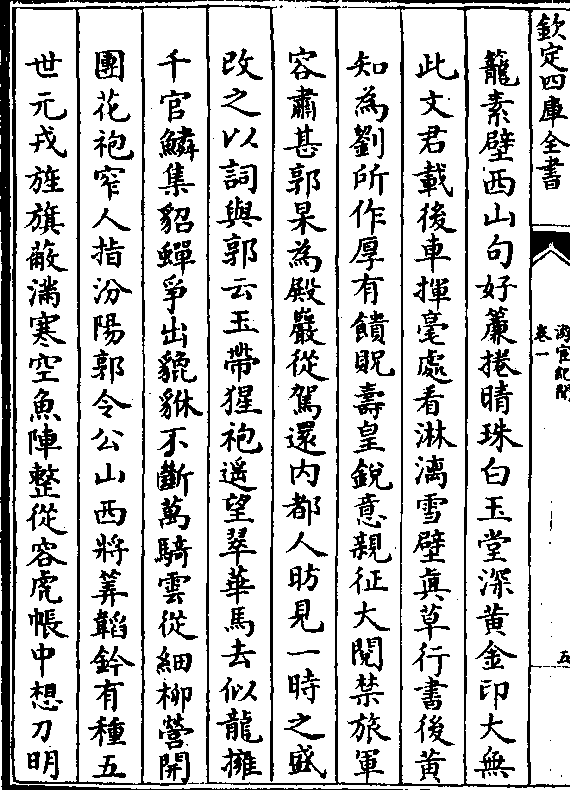 欽定四庫全書
游宦紀聞
卷一
五
籠素壁西山句好簾捲晴珠白玉堂深黄金印大無
此文君載後車揮毫處看淋漓雪壁真草行書後黄
知為劉所作厚有饋貺壽皇鋭意親征大閲禁旅軍
容肅甚郭杲為殿巖從駕還内都人昉見一時之盛
改之以詞與郭云玉帶猩袍遥望翠華馬去似龍擁
千官鱗集貂蟬爭出貔貅不斷萬騎雲從細柳營開
團花袍窄人指汾陽郭令公山西將筭韜鈐有種五
世元戎旌旗蔽滿寒空魚陣整從容虎帳中想刀明